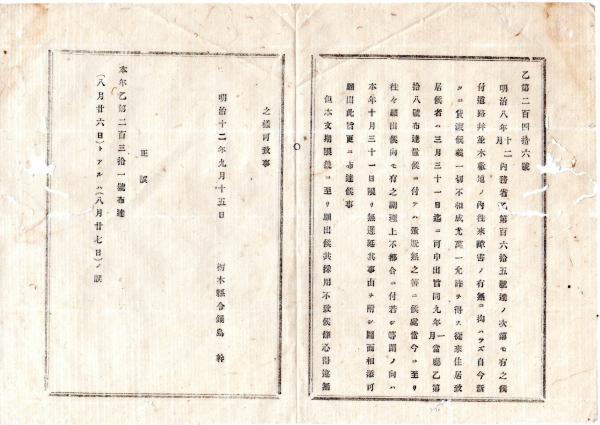 乙第二百四拾六號
明治八年十二月内務省乙第百六拾五號達ノ次第モ有之候ニ
付道路并並木敷地ノ内往來障害ノ有無ニ拘ハラズ自今新
タニ貸渡候義一切不相成尤萬一允許ヲ得ス從來住居致
居候者ハ三月三十一日迄ニ可申出旨同九年一月當廳乙第
拾八號布達候ニ付テハ遺脱無之筈ニ候處當今ニ至リ
往々願出候向モ有之調理上不都合ニ付若シ等閑ノ向ハ
本年十月三十一日限リ無遲延其事由ヲ附シ圖面相添可
願出此旨更ニ布達候事
但本文期限後ニ至リ願出候共採用不致候條心得違無
之樣可致事
明治十二年九月十五日 栃木縣令鍋島幹
正誤
本年乙第二百三拾一號布達
(八月廿六日)トアルハ(八月廿七日)ノ誤